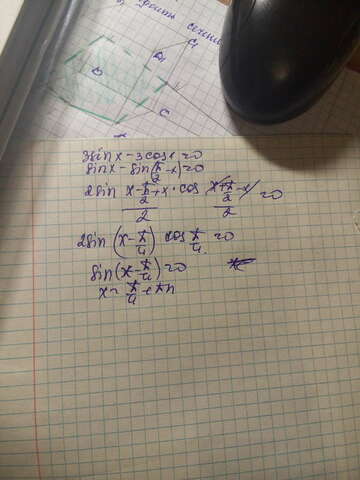 строить сечени
C₁
D₁
D
C
3sin x - 3cos x = 0
sin x - sin(π/2 - x) = 0
2sin (x - π/2 + x)/2 · cos (x + π/2 - x)/2 = 0
2sin (x - π/4) cos π/4 = 0
sin(x - π/4) = 0
x = π/4 + πn